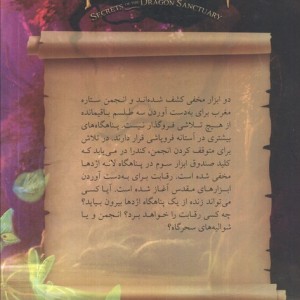 SECRETS OF THE DRAGON SANCTUARY
دو ابزار مخفی کشف شده‌اند و انجمن ستاره
مغرب برای به‌دست آوردن سه طلسم باقیمانده
از هیچ تلاشی فروگذار نیست. پناهگاه‌های
بیشتری در آستانه فروپاشی قرار دارند. در تلاش
برای متوقف کردن انجمن، کندرا در می‌یابد که
کلید صندوق ابزار سوم در پناهگاه لانه اژدها
مخفی شده است. رقابت برای به‌دست آوردن
ابزارهای مقدس آغاز شده است. آیا کسی
می‌تواند زنده از یک پناهگاه اژدها بیرون بیاید؟
چه کسی رقابت را خواهد برد؟ انجمن و یا
شوالیه‌های سحرگاه؟